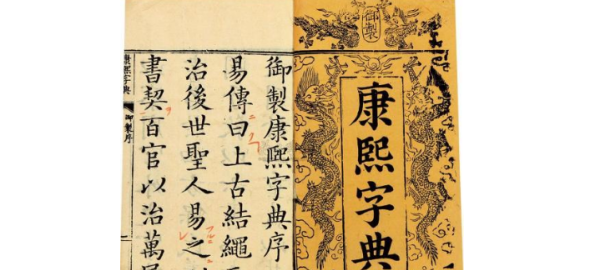 御製
康熙字典
御製康熙字典序
易傳曰上古結繩
治後世聖人易之
書契百官以治萬
康熙字典
御製序